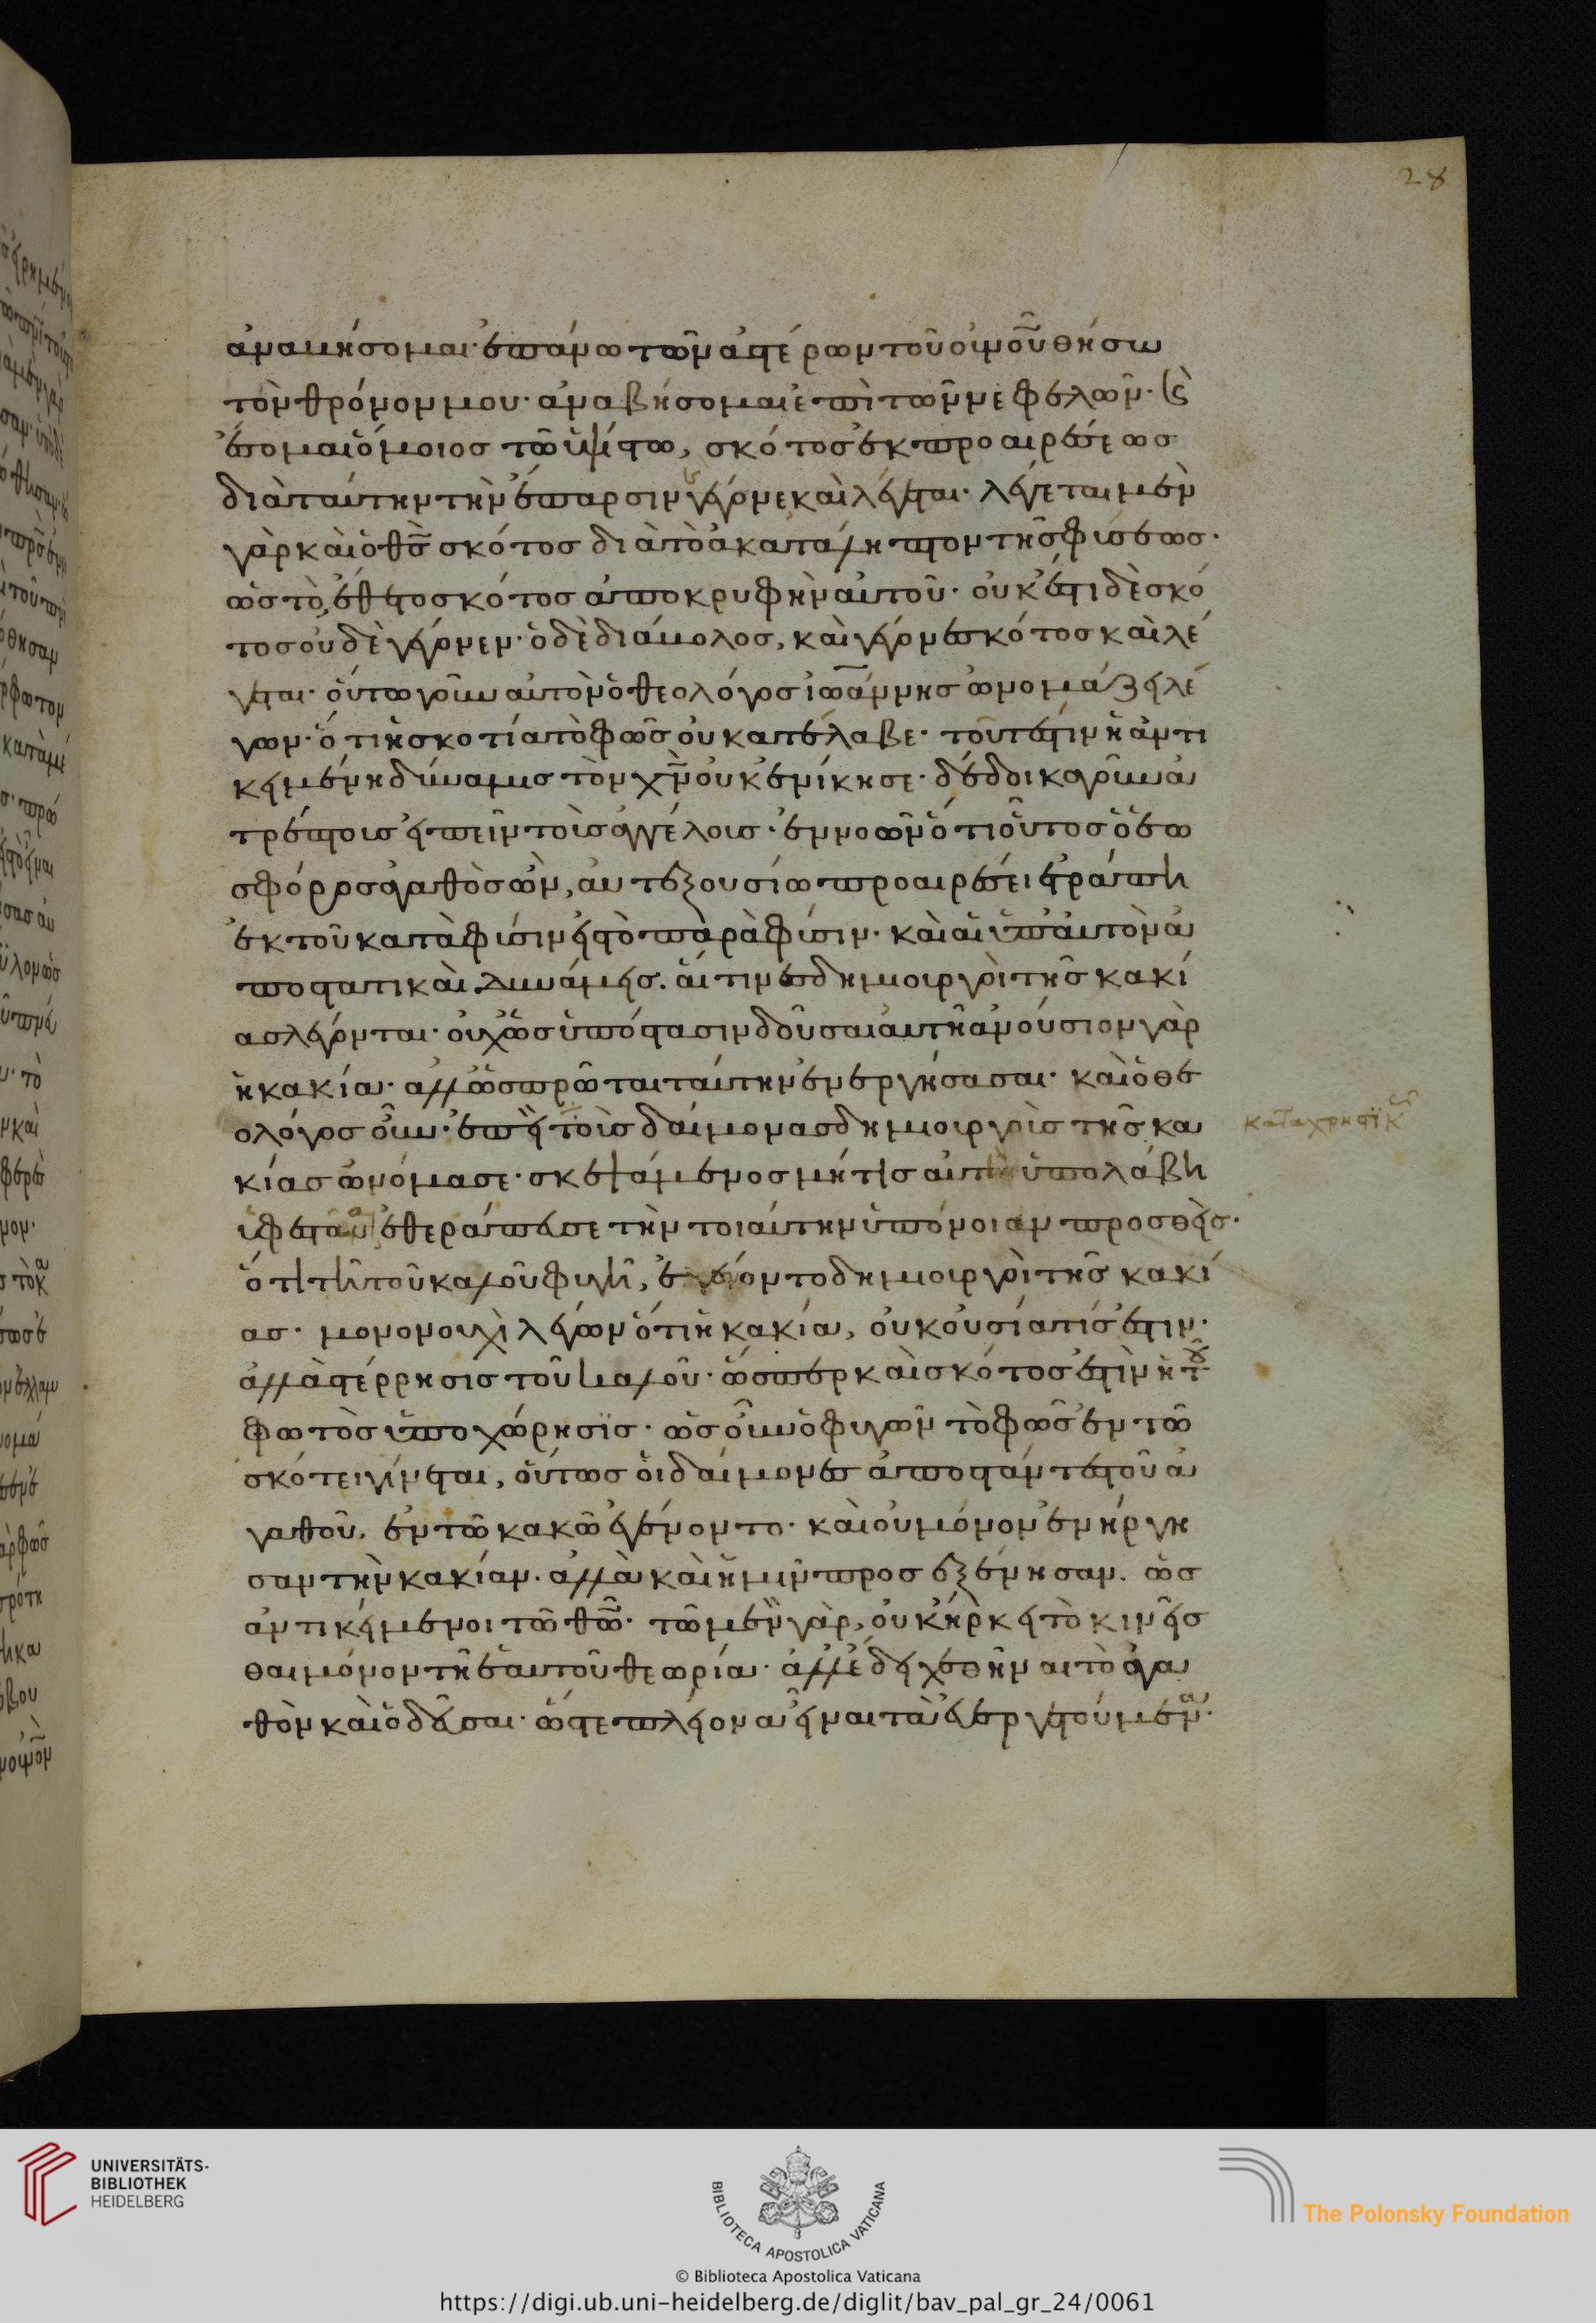 28
ἀναβήσομαι· ἐπάνω τῶν ἀστέρων τοῦ οὐνοῦ θήσω
τὸν θρόνον μου· ἀναβήσομαι ἐπὶ τῶν νεφελῶν· καὶ
ἔσομαι ὅμοιος τῶ ὑψίστω, σκότος ἐκ προαιρέσεως
διὰ ταύτην τὴν ἔπαρσιν γέγονε καὶ λέγεται· λέγεται μὲν
γὰρ καὶ ὁ θς σκότος διὰ τὸ ἀκατάληπτον τῆς φύσεως·
ὡς τὸ, ἔθετο σκότος ἀποκρυφὴν αὐτοῦ· οὐκ ἔστι δὲ σκό
τος οὐδὲ γέγονεν· ὁ δὲ διάβολος, καὶ γέγονε σκότος καὶ λέ
γεται· οὕτω γοῦν αὐτὸν ὁ θεολόγος ἰωάννης ὠνομάζει λέ
γων· ὅτι ἡ σκοτία τὸ φῶς οὐ κατέλαβε· τοῦτέστιν ἡ ἀντι
κειμένη δύναμις τὸν χν οὐκ ἐνίκησε· δέδοικα γοῦν ἀ
τρέπτοις εἰπεῖν τοῖς ἀγγέλοις· ἐννοῶν ὅτι οὗτος ὁ ἑω
σφόρος ἀγαθὸς ὢν, αὐτεξουσίω προαιρέσει ἐτράπη
ἐκ τοῦ κατὰ φύσιν εἰς τὸ παρὰ φύσιν· καὶ αἱ ὑπ' αὐτὸν ἀ
ποστατικαὶ δυνάμεις. αἵτινες δημιουργοὶ τῆς κακί
ας λέγονται· οὐχ ὡς ὑπόστασιν δοῦσαι αὐτῆ ἀνούσιον γὰρ
ἡ κακία· ἀλλ' ὡς πρῶται ταύτην ἐνεργήσασαι· καὶ ὁ θε
ολόγος οὖν· ἐπεὶ τοὶς δαίμονας δημιουργοὶς τῆς κα
κίας ὠνόμασε· σκεψάμενος μήτις αὐτὴν ὑπολάβη
ὑφεστάναι ἐθεράπευσε τὴν τοιαύτην ὑπόνοιαν προσθεὶς·
ὅτι τῆ τοῦ καλοῦ φυγῆ, ἐγένοντο δημιουργοὶ τῆς κακί
ας· μονονουχὶ λέγων ὅτι ἡ κακία, οὐκ οὐσία τίς ἐστιν·
ἀλλὰ στέρρησις τοῦ καλοῦ· ὥσπερ καὶ σκότος ἐστὶν ἡ τοῦ
φωτὸς ὑποχώρησις· ὡς οὖν ὁ φυγὼν τὸ φῶς ἐν τῶ
σκότει γίνεται, οὕτως οἱ δαίμονες ἀποστάντες τοῦ ἀ
γαθοῦ, ἐν τῶ κακῶ ἐγένοντο· καὶ οὐ μόνον ἐνήργη
σαν τὴν κακίαν. ἀλλὰ καὶ ἡμῖν προσεξένησαν. ὡς
ἀντικείμενοι τῶ θῶ· τῶ μὲν γὰρ, οὐκ ἤρκει τὸ κινεῖσ
θαι μόνον τῆ ἑαυτοῦ θεωρία· ἀλλ' ἔδει χεθῆναι τὸ ἀγα
θὸν καὶ ὁδεῦσαι· ὥστε πλείονα εἶναι τὰ εὐεργετούμενα·
καταχρηστικῶς
UNIVERSITÄTS-
BIBLIOTHEK
HEIDELBERG
BIBLIOTECA APOSTOLICA VATICANA
The Polonsky Foundation
© Biblioteca Apostolica Vaticana
https://digi.ub.uni-heidelberg.de/diglit/bav_pal_gr_24/0061